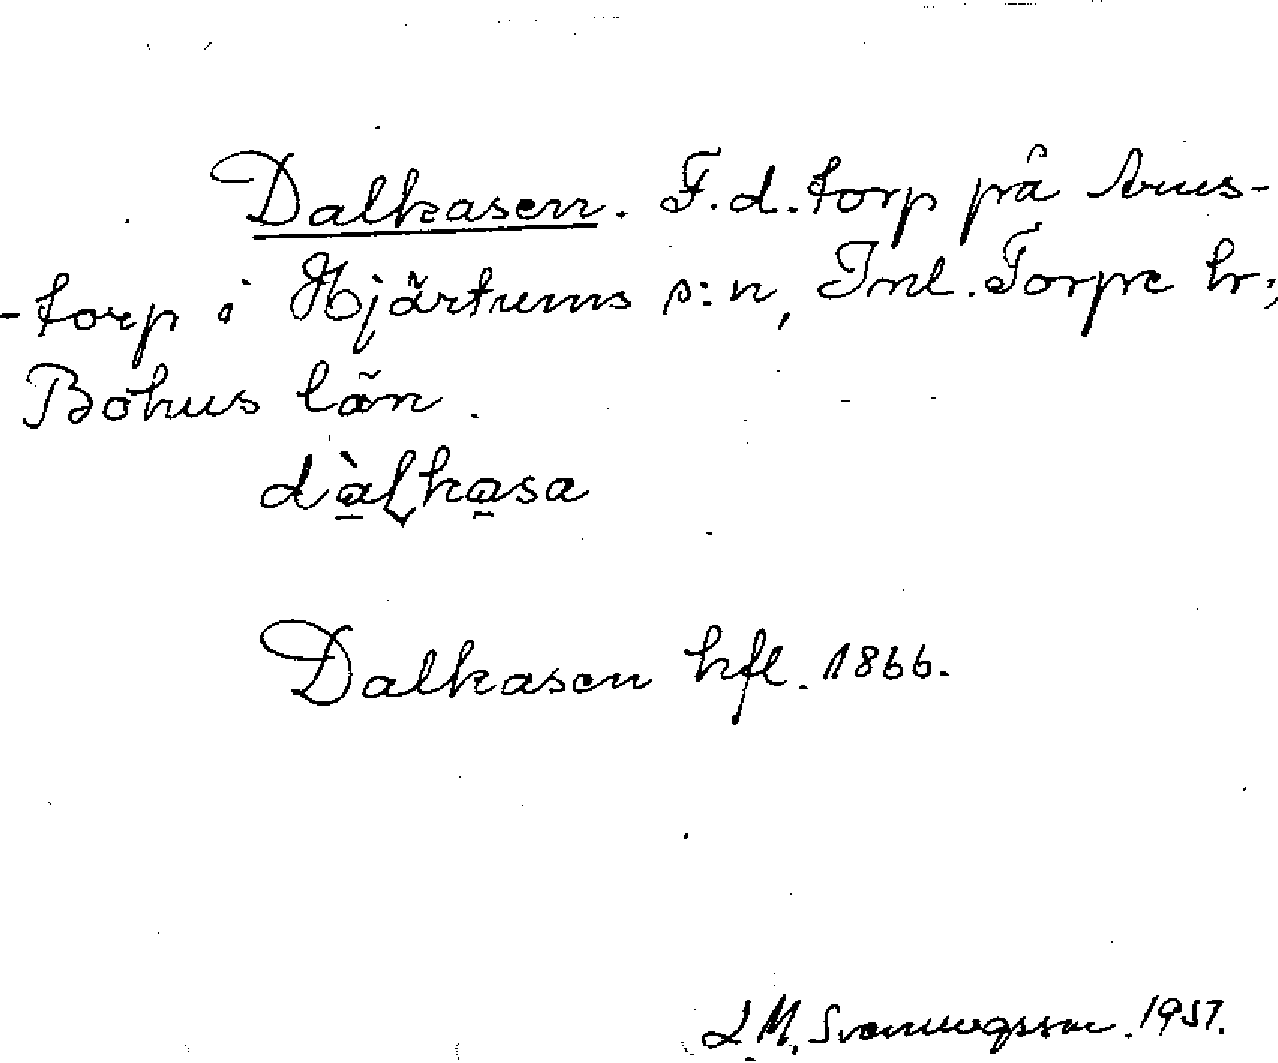 Dalkasen. F.d. torp på
-torp i Hjärtums s:n, Inl. Torpe hr;
Bohus län.
dàlkasa
Dalkasen hfl. 1866.
L M. Svenungsson. 1957.